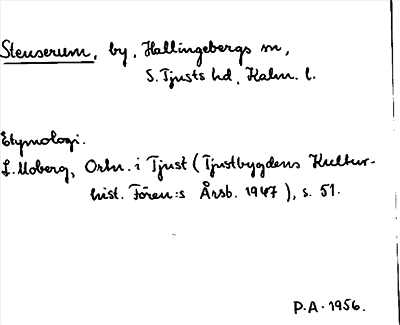 Stenserum, by, Hallingebergs sn,
S. Tjusts hd, Kalm. l.
Etymologi.
L. Moberg, Ortn. i Tjust (Tjustbygdens Kultur-
hist. Fören:s Årsb. 1947), s. 51.
P.A. 1956.